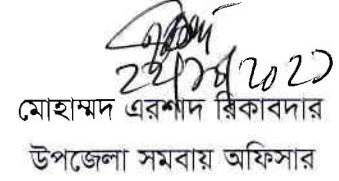 মোহাম্মদ এরশাদ রিকাবদার
উপজেলা সমবায় অফিসার